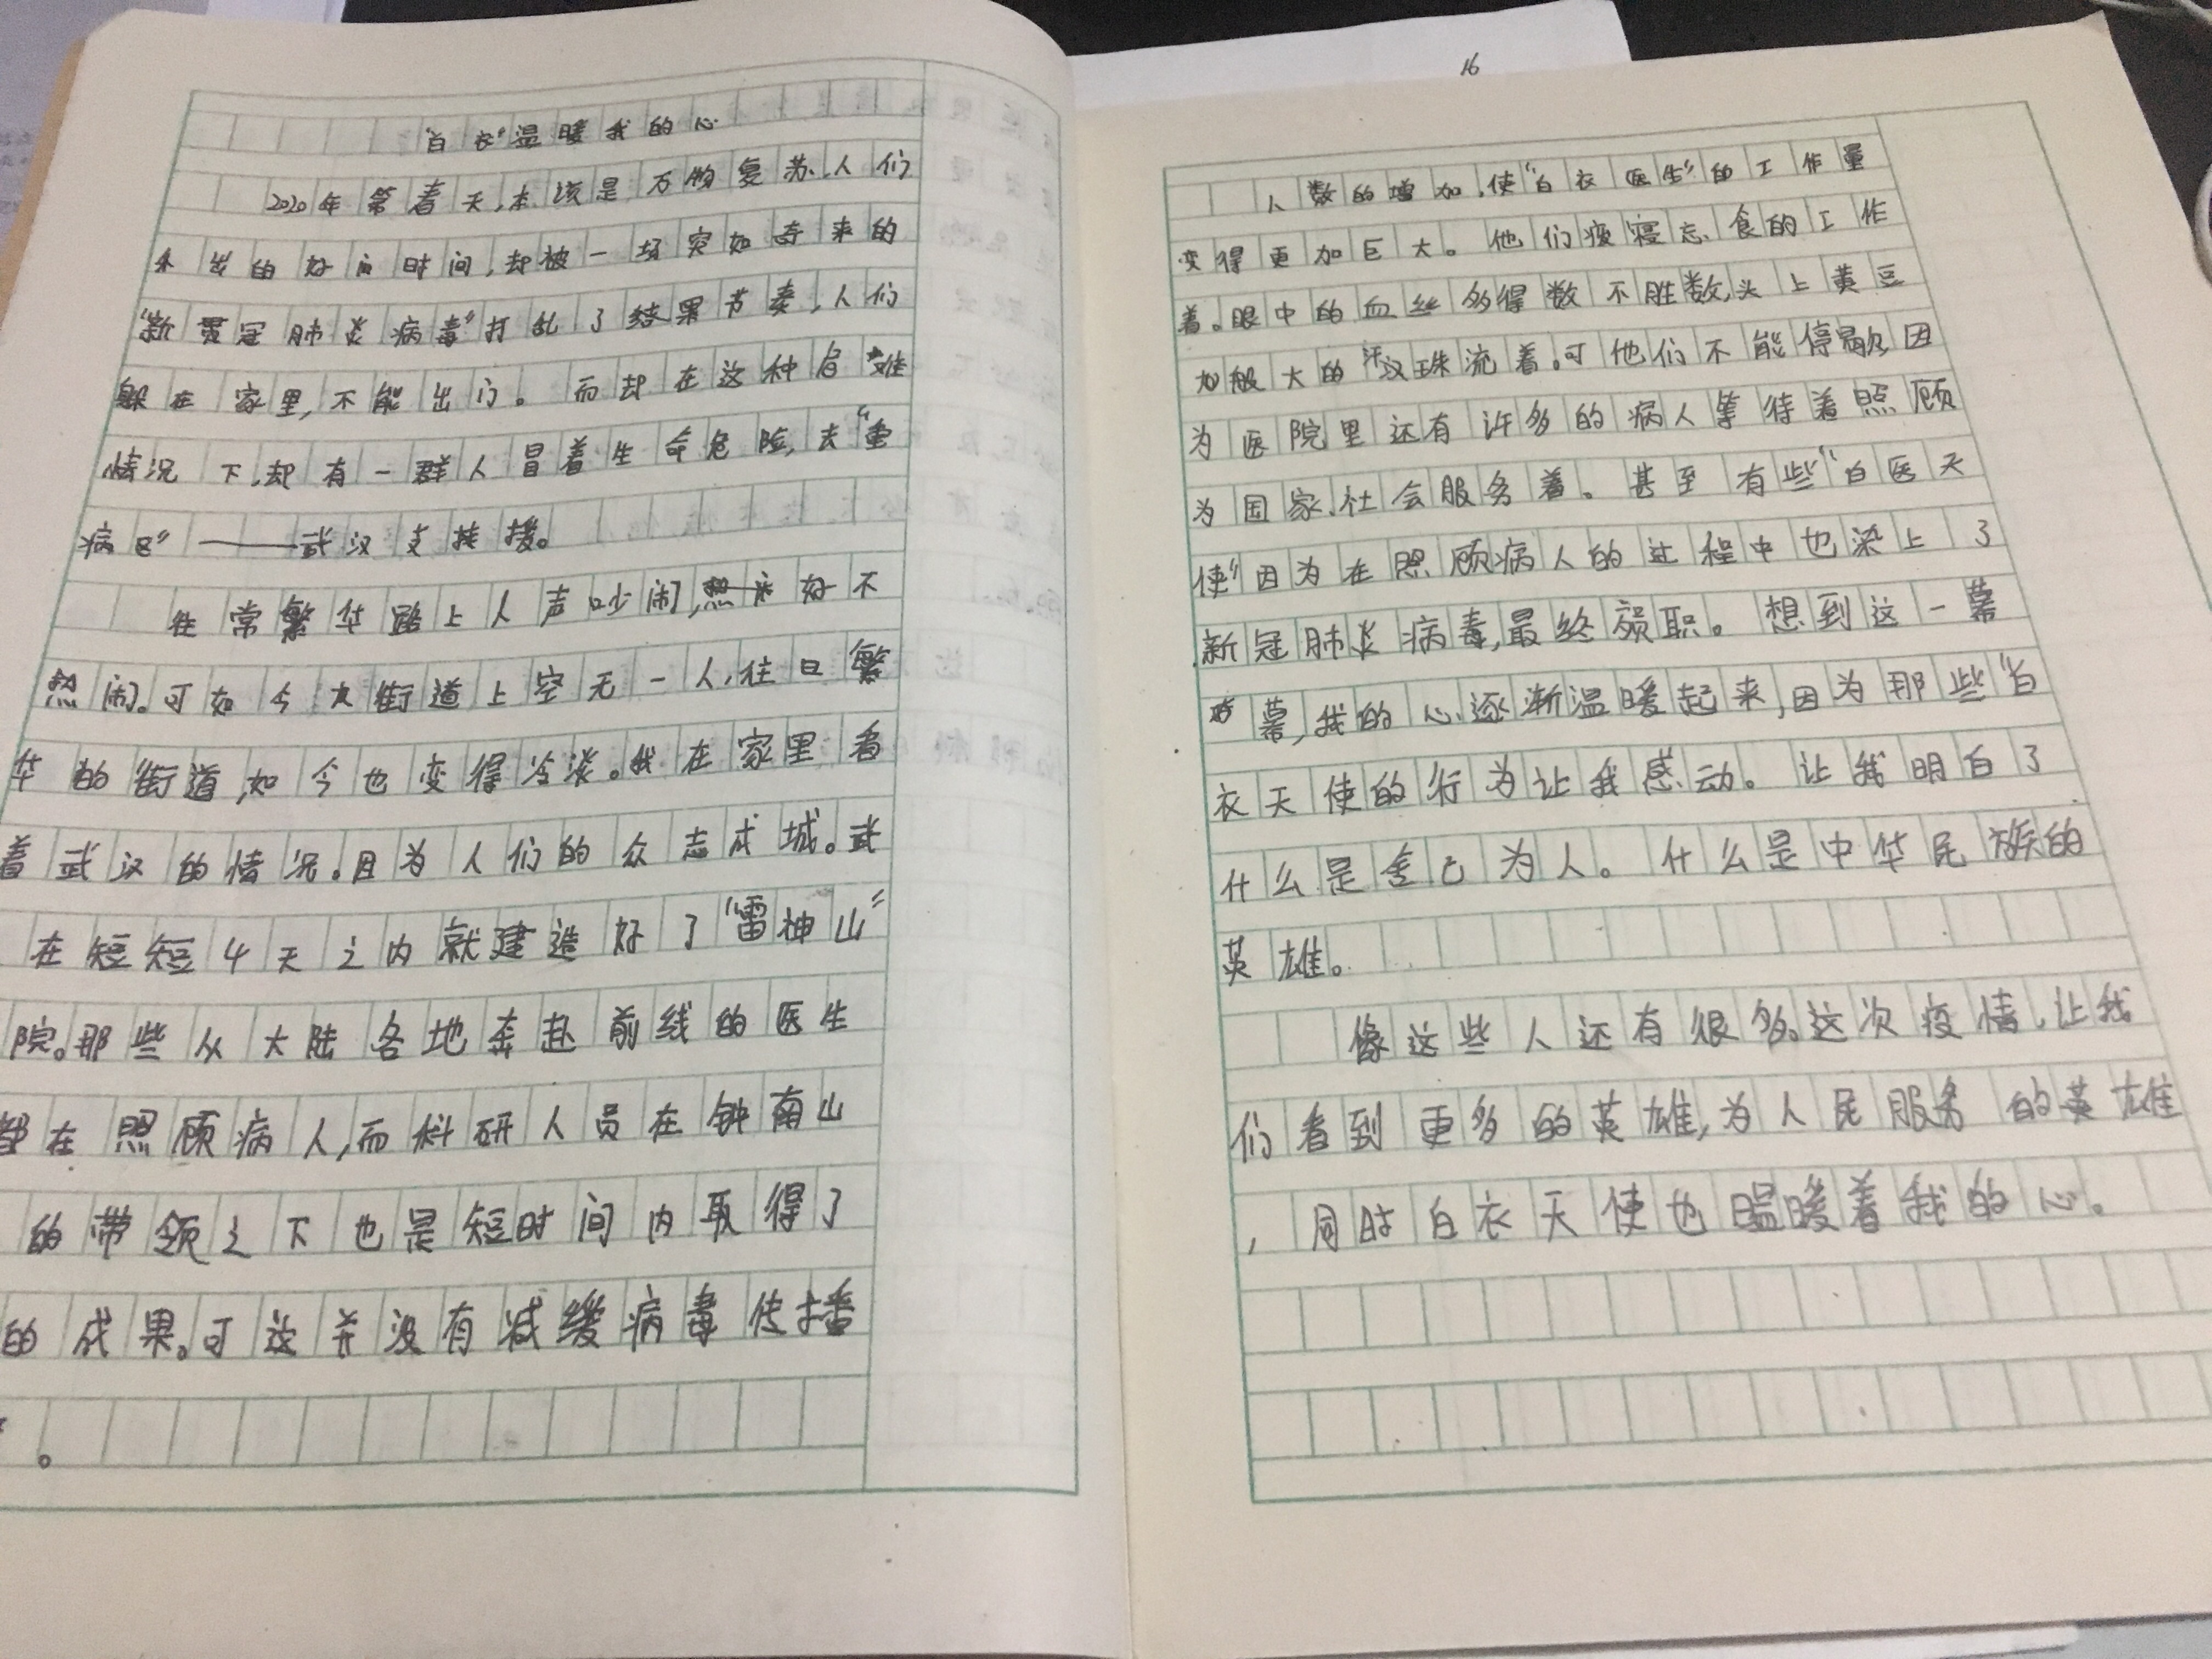 “白衣”温暖我的心
2020年第春天,本该是万物复苏、人们
外出的好时间,却被一场突如奇来的
“新冠肺炎病毒”打乱了结果节奏,人们
躲在家里,不能出门。而却在这种危难
情况下,却有一群人冒着生命危险,去“重
病区”——武汉支援。
往常繁华路上人声吵闹,好不
热闹。可如今大街道上空无一人,往日繁
华的街道,如今也变得冷淡。我在家里看
着武汉的情况。因为人们的众志成城。武
在短短4天之内就建造好了“雷神山”
院。那些从大陆各地奔赴前线的医生
都在照顾病人,而科研人员在钟南山
的带领之下也是短时间内取得了
的成果。可这并没有减缓病毒传播
。
16
人数的增加,使“白衣医生”的工作量
变得更加巨大。他们废寝忘食的工作
着。眼中的血丝多得数不胜数,头上黄豆
般大的汗珠流着。可他们不能停歇,因
为医院里还有许多的病人等待着照顾
为国家、社会服务着。甚至有些“白医天
使”因为在照顾病人的过程中也染上了
新冠肺炎病毒,最终殒职。想到这一幕
幕,我的心逐渐温暖起来,因为那些“白
衣天使的行为让我感动。让我明白了
什么是舍己为人。什么是中华民族的
英雄。
像这些人还有很多。这次疫情,让我
们看到更多的英雄,为人民服务的英雄
,同时白衣天使也温暖着我的心。